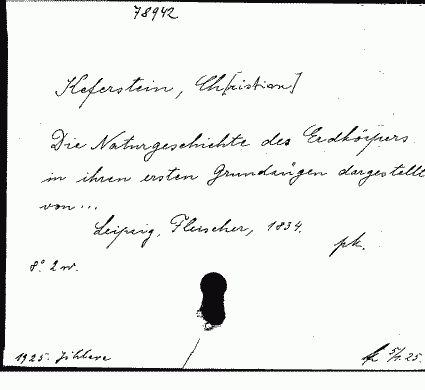 78942
Keferstein, Ch[ristian]
Die Naturgeschichte des Erdkörpers
in ihren ersten Grundzügen dargestellt
von...
Leipzig, Fleischer, 1834.
pk.
8° 2 w.
1925. Jihlava
5/1. 25.